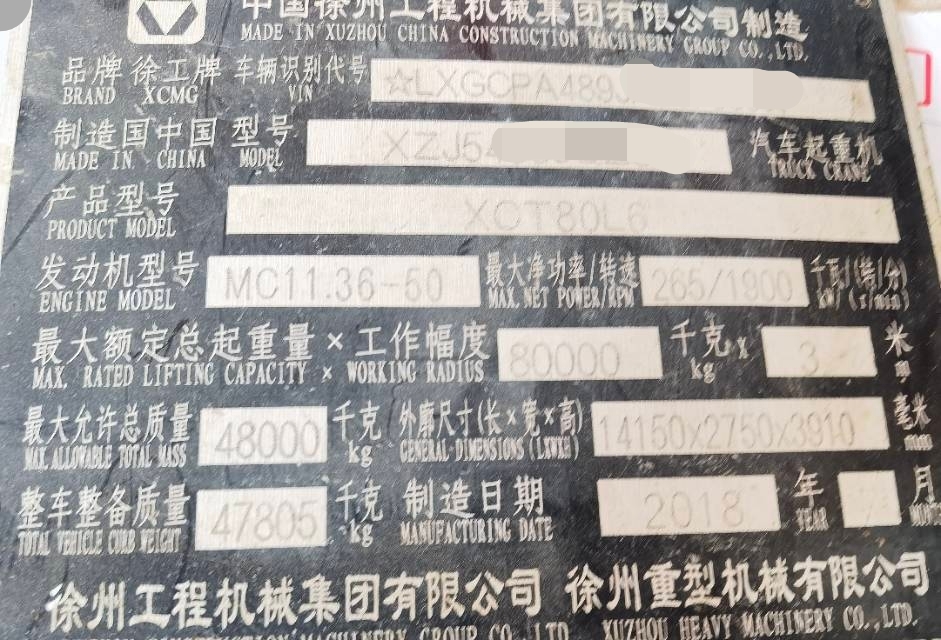 中国徐州工程机械集团有限公司制造
MADE IN XUZHOU CHINA CONSTRUCTION MACHINERY GROUP CO.,LTD.
品牌 徐工牌 车辆识别代号 ☆LXGCPA489
BRAND XCMG VIN
制造国 中国 型号 XZJ5 汽车起重机
MADE IN CHINA MODEL TRUCK CRANE
产品型号 XCT80L6
PRODUCT MODEL
发动机型号 MC11.36-50 最大净功率/转速 265/1900 千瓦/(转/分)
ENGINE MODEL MAX. NET POWER/RPM kW/(r/min)
最大额定总起重量×工作幅度 80000 千克 x 3 米
MAX. RATED LIFTING CAPACITY × WORKING RADIUS kg m
最大允许总质量 48000 千克 外廓尺寸(长×宽×高) 14150x2750x3910 毫米
MAX. ALLOWABLE TOTAL MASS kg GENERAL DIMENSIONS (LXWXH) mm
整车整备质量 47805 千克 制造日期 2018 年 月
TOTAL VEHICLE CURB WEIGHT kg MANUFACTURING DATE YEAR
徐州工程机械集团有限公司 徐州重型机械有限公司
CONSTRUCTION MACHINERY GROUP CO.,LTD. XUZHOU HEAVY MACHINERY CO.,LTD.